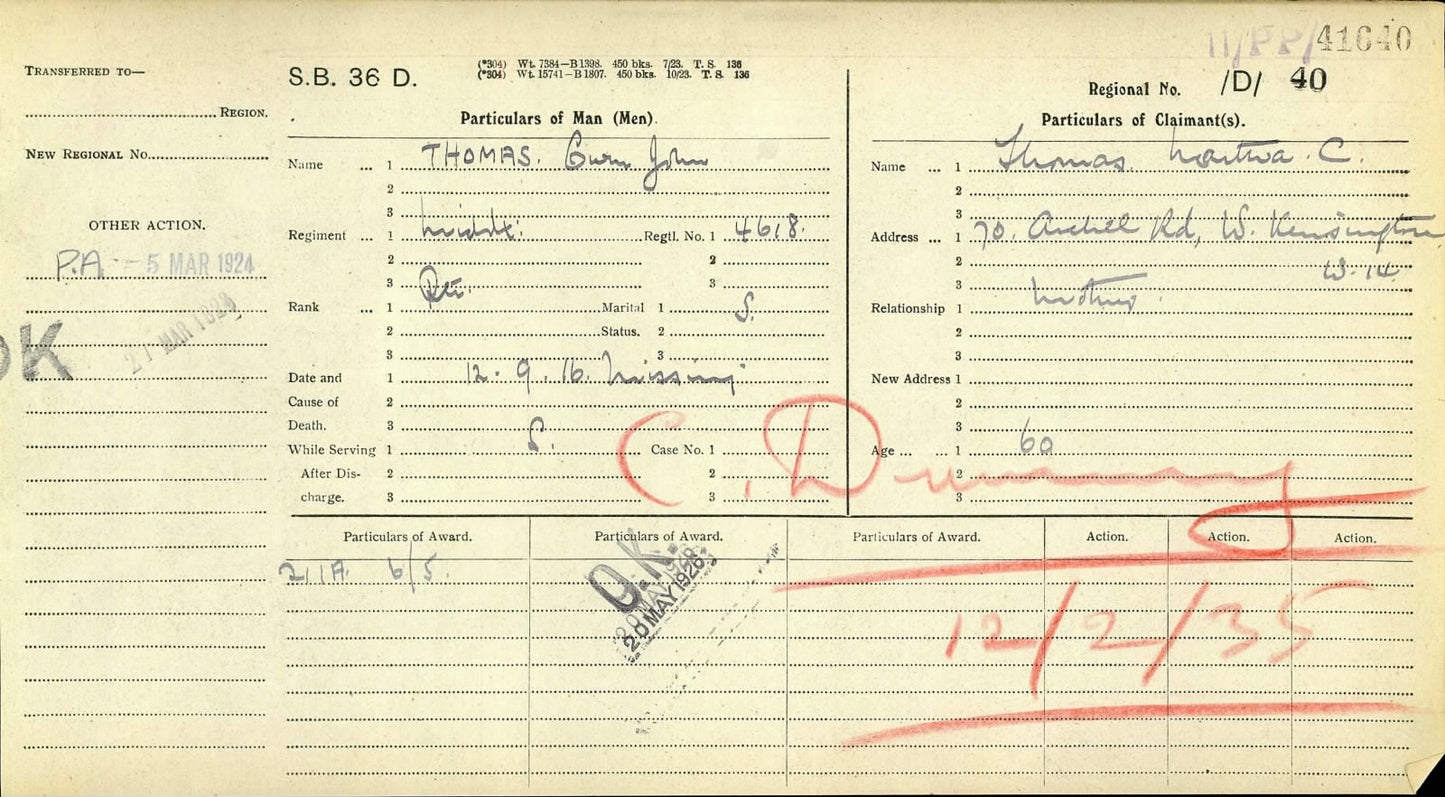 11/PP/41640
TRANSFERRED TO—
REGION.
NEW REGIONAL No.
OTHER ACTION.
P.A. - 5 MAR 1924
27 MAR 1924
OK
S.B. 36 D.
(*304) Wt. 7384—B1398. 450 bks. 7/23. T. S. 136
(*304) Wt. 15741—B1807. 450 bks. 10/23. T. S. 136
Particulars of Man (Men).
Name ... 1 THOMAS. John
2
3
Regiment ... 1 Middx: Regtl. No. 1 4618.
2 2
3 3
Rank ... 1 Pte. Marital 1 S.
2 Status. 2
3 3
Date and 1 12. 9. 16. Missing
Cause of 2
Death. 3
While Serving 1 S. Case No. 1
After Dis- 2 2
charge. 3 3
Regional No. /D/ 40
Particulars of Claimant(s).
Name ... 1 Thomas. C.
2
3
Address ... 1 70. Rd, W. Kensington
2 W. 14
3
Relationship 1 Mother.
2
3
New Address 1
2
3
Age ... ... 1 60
2
3
C. D
Particulars of Award. Particulars of Award. Particulars of Award. Action. Action. Action.
211A. 6/5.
O.K.
20 MAY 1926
12/2/35